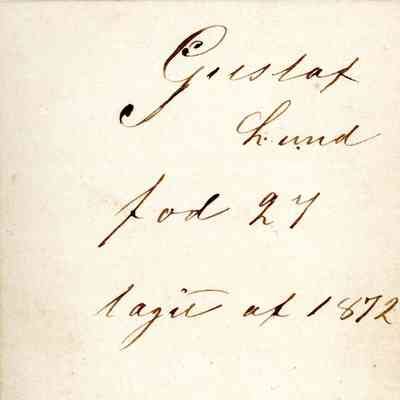 Gustaf
Lund
fod 27
tagit af 1872